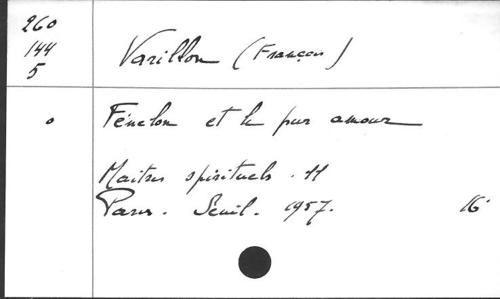 260
144
5
Varillon (François)
o
Fénelon et le pur amour
Maitres spirituels . 11
Paris. Seuil. 1957. 16°